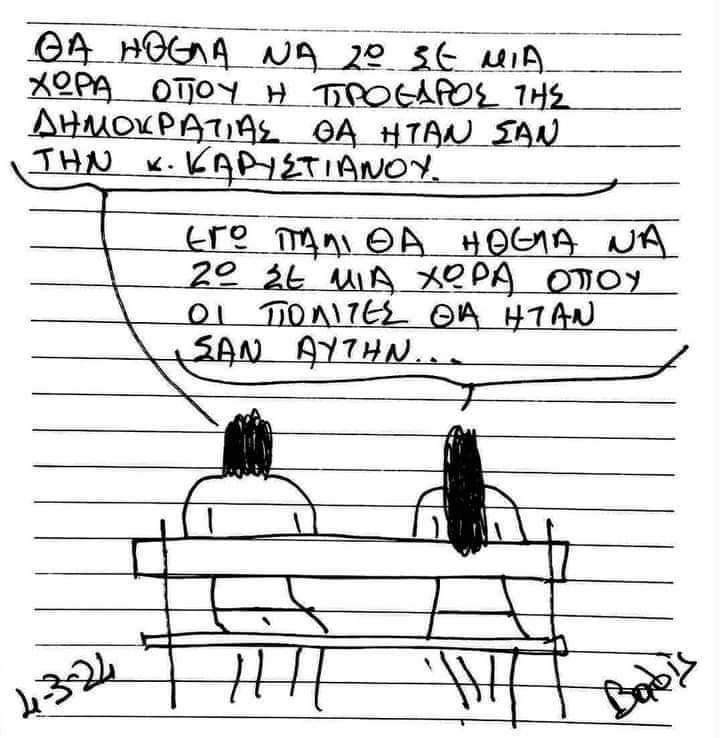 ΘΑ ΗΘΕΛΑ ΝΑ ΖΩ ΣΕ ΜΙΑ
ΧΩΡΑ ΟΠΟΥ Η ΠΡΟΕΔΡΟΣ ΤΗΣ
ΔΗΜΟΚΡΑΤΙΑΣ ΘΑ ΗΤΑΝ ΣΑΝ
ΤΗΝ κ. ΚΑΡΥΣΤΙΑΝΟΥ.
ΕΓΩ ΠΑΛΙ ΘΑ ΗΘΕΛΑ ΝΑ
ΖΩ ΣΕ ΜΙΑ ΧΩΡΑ ΟΠΟΥ
ΟΙ ΠΟΛΙΤΕΣ ΘΑ ΗΤΑΝ
ΣΑΝ ΑΥΤΗΝ...
4-3-24
Babis